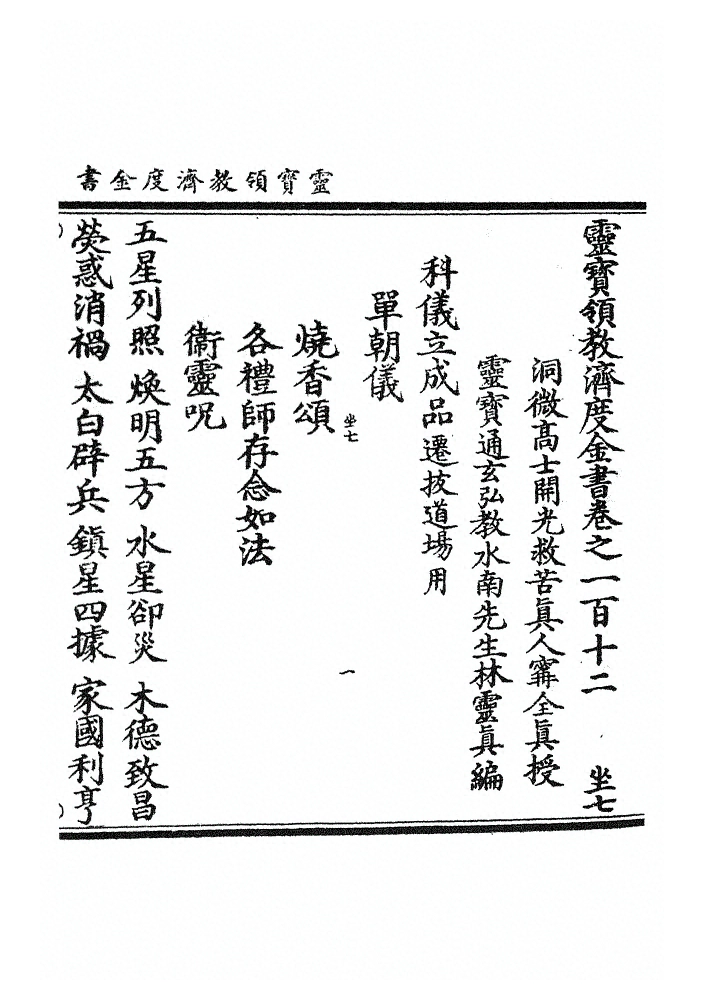 靈寶領教濟度金書
靈寶領教濟度金書卷之一百十二　坐七
洞微高士開光救苦眞人甯全眞授
靈寶通玄弘教水南先生林靈眞編
科儀立成品遷拔道場用
單朝儀
坐七　一
燒香頌
各禮師存念如法
衞靈呪
五星列照　煥明五方　水星卻災　木德致昌
熒惑消禍　太白辟兵　鎭星四據　家國利亨